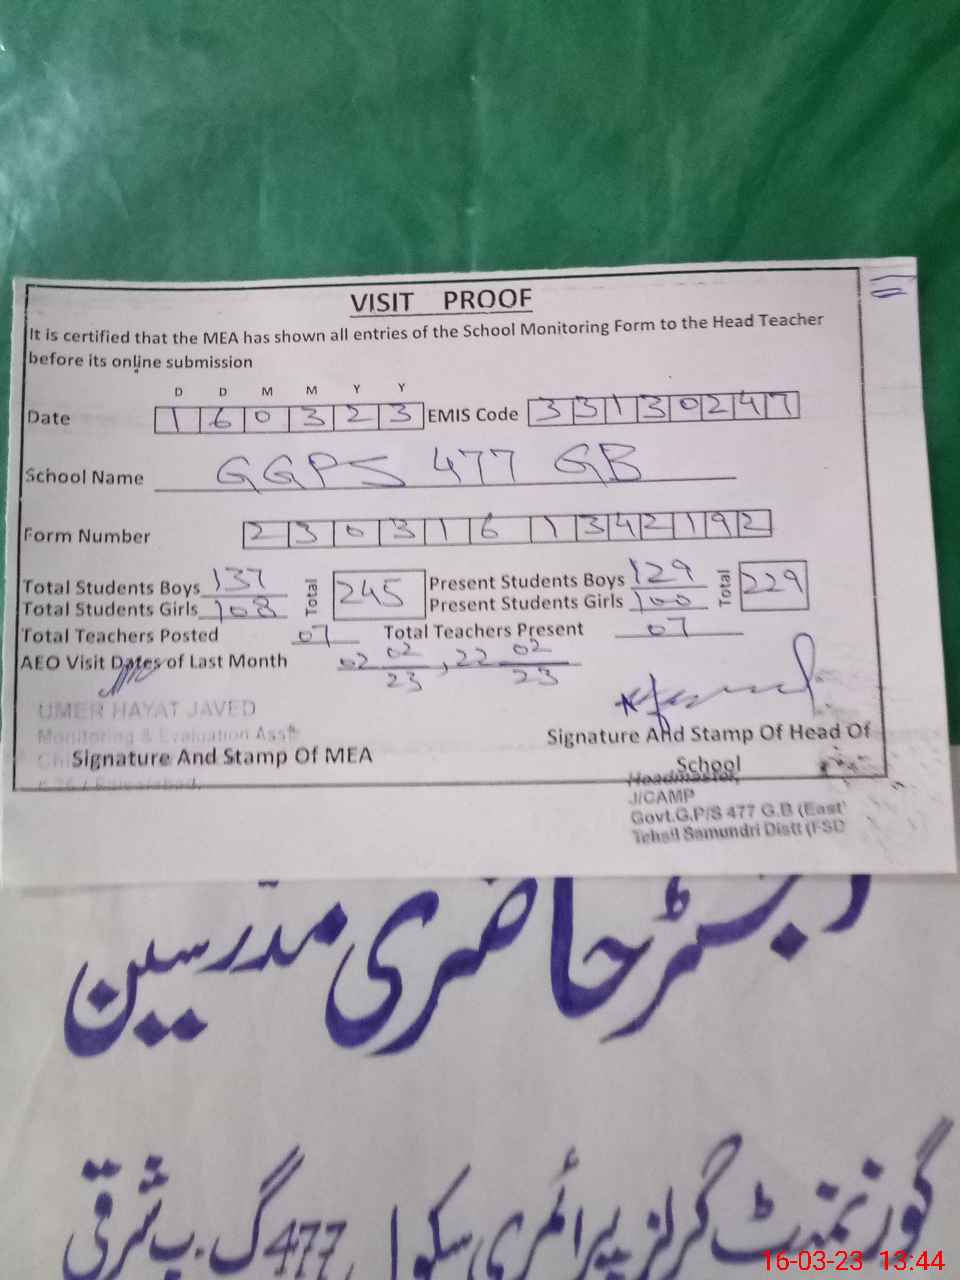 VISIT PROOF
It is certified that the MEA has shown all entries of the School Monitoring Form to the Head Teacher
before its online submission
D D M M Y Y
Date 1 6 0 3 2 3 EMIS Code 3 3 1 3 0 2 4 7
School Name GGPS 477 GB
Form Number 2 3 0 3 1 6 1 3 4 2 1 9 2
Total Students Boys 137 Total 245 Present Students Boys 129 Total 229
Total Students Girls 108 Present Students Girls 100
Total Teachers Posted 07 Total Teachers Present 07
AEO Visit Dates of Last Month 02 02 23, 22 02 23
UMER HAYAT JAVED
Monitoring & Evaluation Asstt
Signature And Stamp Of MEA
Signature And Stamp Of Head Of
School
Headmaster,
J/CAMP
Govt.G.P/S 477 G.B (East
Tehsil Samundri Distt (FSD
رجسٹر حاضری مدرسین
گورنمنٹ گرلز پرائمری سکول 477 گ.ب شرقی
16-03-23 13:44